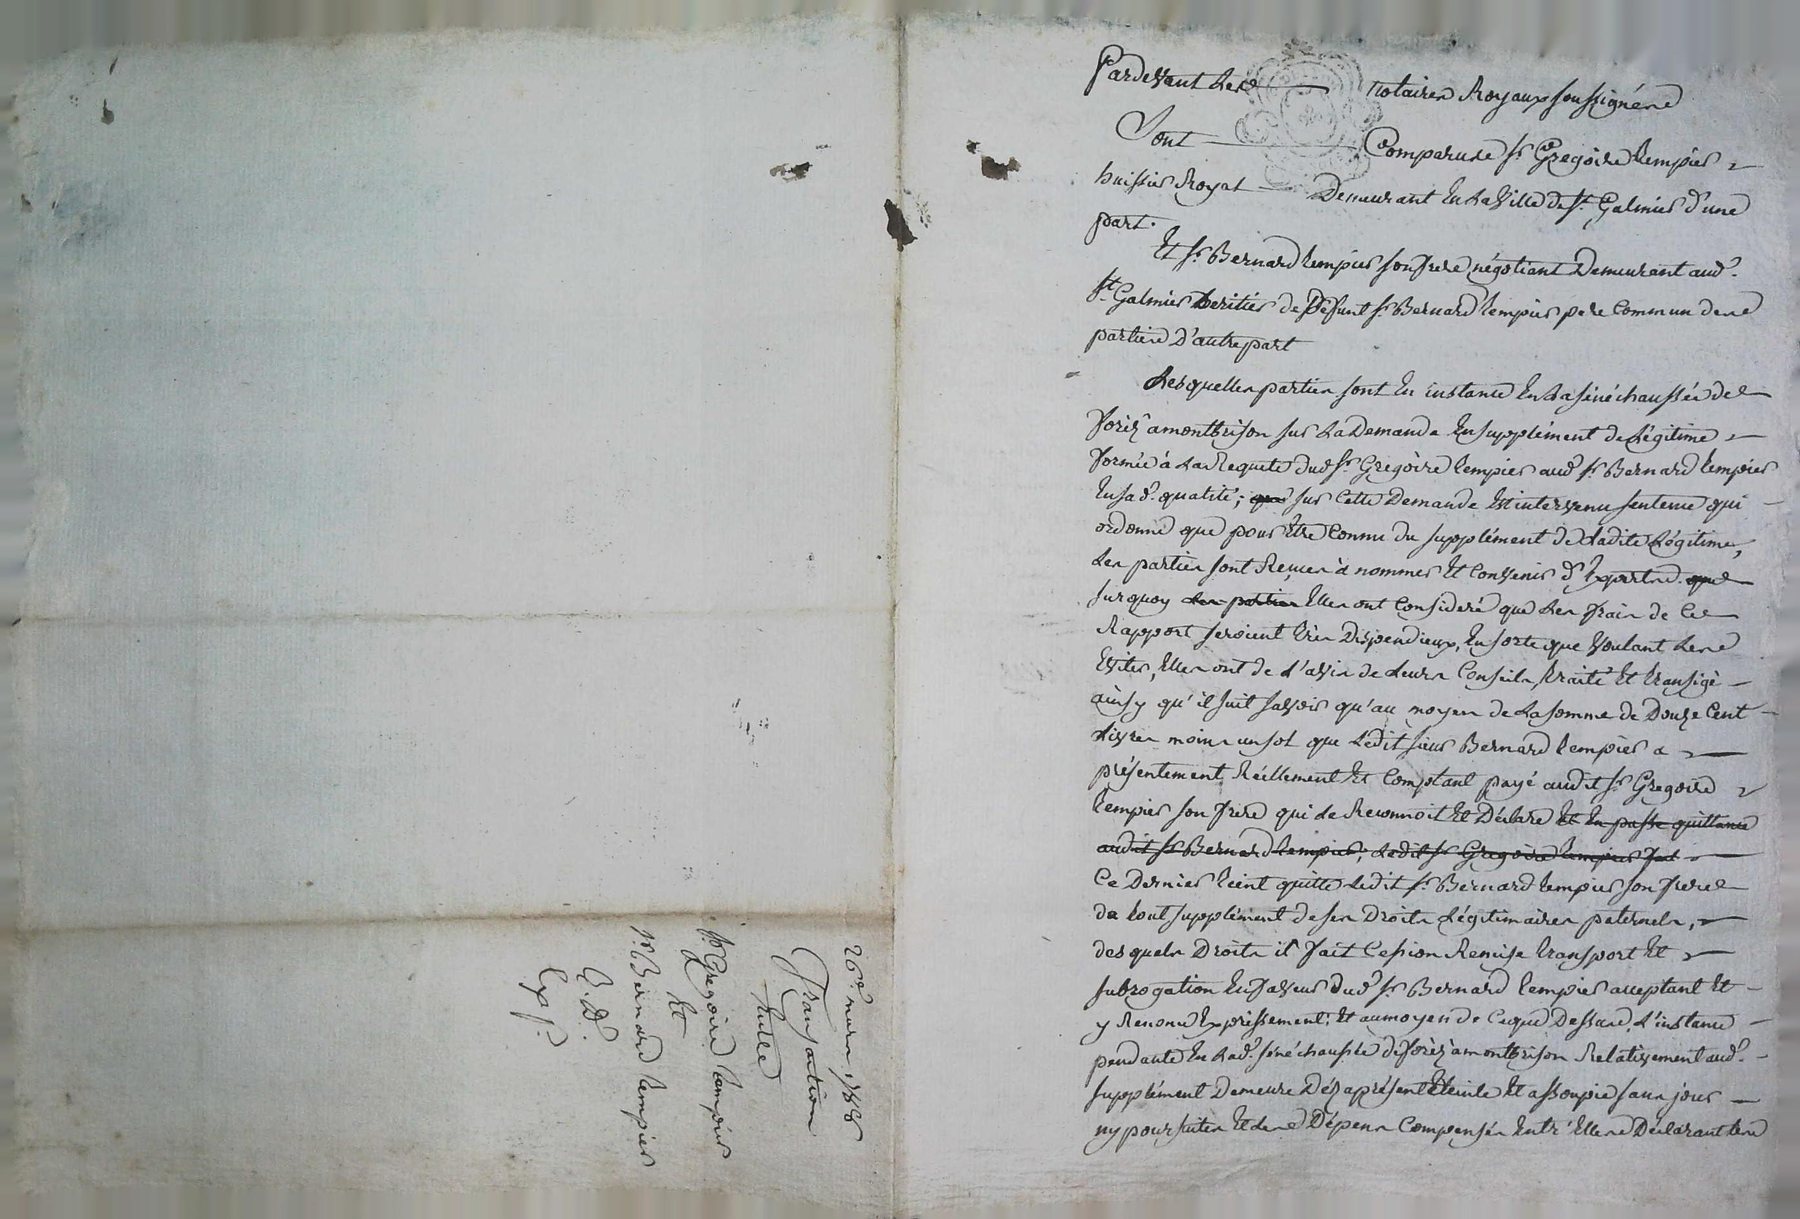 Pardevant Les notaires Royaux soussignés
Sont Comparus Sr. Gregoire Tempier
huissier Royal Demeurant En La Ville de St. Galmier d'une
part.
Et Sr. Bernard Tempier son frere négotiant Demeurant aud.
St. Galmier heritier de Défunt Sr. Bernard Tempier pere Commun des
parties D'autre part
Lesquelles parties sont En instance En La sénéchaussée de
forêz a montbrison sur La Demande En supplément de Légitime
formée à La Requete dud Sr. Gregoire Tempier aud Sr. Bernard Tempier
En sad. qualité; sur Cette Demande Est intervenu sentence qui
ordonne que pour Etre Connu du supplément de Ladite Légitime,
Les parties sont Renvoiées à nommer Et Convenir d'Experts que
surquoy Les parties Elles ont Consideré que Les frais de Ce
Rapport seroient très Dispendieux, En sorte que Voulant Les
Eviter, Elles ont de L'avis de Leurs Conseils, traité Et transigé
ainsy qu'il suit savoir qu'au moyen de La somme de Douze Cent
Livres moins un sol que Ledit sieur Bernard Tempier a
présentement Réellement Et Comptant payé audit Sr. Gregoire
Tempier son frere qui Le Reconnoit Et Déclare Et En passe quittance
audit Sr. Bernard Tempier, Ledit Sr. Gregoire Tempier fait
Ce Dernier tient quitte Ledit Sr. Bernard Tempier son frere
de tout supplément de ses Droits Légitimaires paternels,
desquels Droits il fait Cession Remise transport Et
subrogation En faveur dud. Sr. Bernard Tempier acceptant Et
y Renonce Expressement; Et au moyen de Ceque Dessus, L'instance
pendante En Lad. sénéchaussée de forêz a montbrison Relativement aud.
supplément Demeure Déz aprésent Eteinte Et assoupie sans jours
ny poursuites Et Les Dépens Compensés Entr'Elles Déclarant Les
26e. mars 1788
Transaction
Entre
Sr. Gregoire Tempier
Et
Sr. Bernard Tempier
Exp.